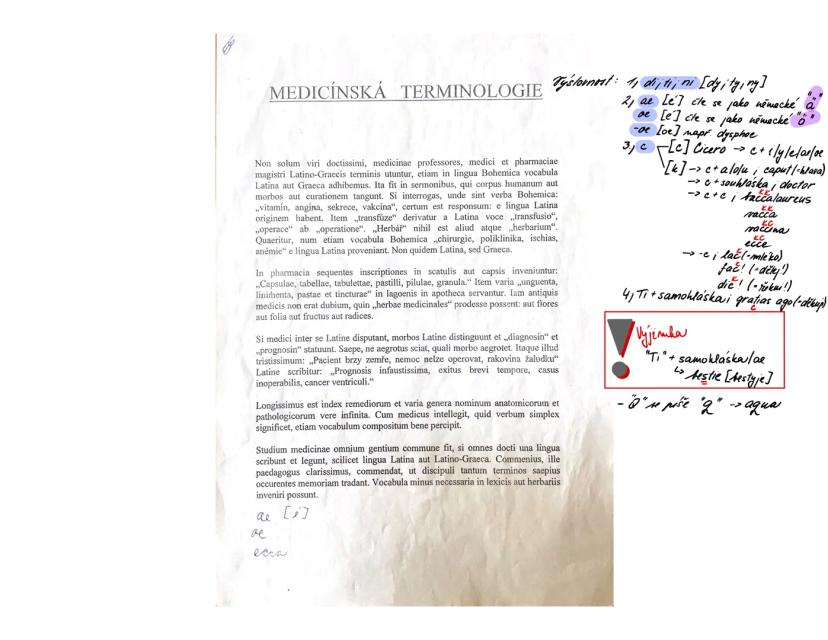 MEDICÍNSKÁ TERMINOLOGIE
Non solum viri doctissimi, medicinae professores, medici et pharmaciae
magistri Latino-Graecis terminis utuntur, etiam in lingua Bohemica vocabula
Latina aut Graeca adhibemus. Ita fit in sermonibus, qui corpus humanum aut
morbos aut curationem tangunt. Si interrogas, unde sint verba Bohemica:
„vitamín, angina, sekrece, vakcína“, certum est responsum: e lingua Latina
originem habent. Item „transfúze“ derivatur a Latina voce „transfusio“,
„operace“ ab „operatione“. „Herbář“ nihil est aliud atque „herbarium“.
Quaeritur, num etiam vocabula Bohemica „chirurgie, poliklinika, ischias,
anémie“ e lingua Latina proveniant. Non quidem Latina, sed Graeca.
In pharmacia sequentes inscriptiones in scatulis aut capsis inveniuntur:
„Capsulae, tabellae, tabulettae, pastilli, pilulae, granula.“ Item varia „unguenta,
linimenta, pastae et tincturae“ in lagoenis in apotheca servantur. Iam antiquis
medicis non erat dubium, quin „herbae medicinales“ prodesse possent: aut flores
aut folia aut fructus aut radices.
Si medici inter se Latine disputant, morbos Latine distinguunt et „diagnosin“ et
„prognosin“ statuunt. Saepe, ne aegrotus sciat, quali morbo aegrotet. Itaque illud
tristissimum: „Pacient brzy zemře, nemoc nelze operovat, rakovina žaludku“
Latine scribitur: „Prognosis infaustissima, exitus brevi tempore, casus
inoperabilis, cancer ventriculi.“
Longissimus est index remediorum et varia genera nominum anatomicorum et
pathologicorum vere infinita. Cum medicus intellegit, quid verbum simplex
significet, etiam vocabulum compositum bene percipit.
Studium medicinae omnium gentium commune fit, si omnes docti una lingua
scribunt et legunt, scilicet lingua Latina aut Latino-Graeca. Commenius, ille
paedagogus clarissimus, commendat, ut discipuli tantum terminos saepius
occurentes memoriam tradant. Vocabula minus necessaria in lexicis aut herbariis
inveniri possunt.
ae [é]
oe
Výslovnost: 1, di, ti, ni [dy, ty, ny]
2, ae [é] čte se jako německé "ä"
oe [é] čte se jako německé "ö"
-oe [oe] např. dysphoe
3, c [c] Cicero → c + i/y/e/ae/oe
[k] → c + a/o/u, caput (=hlava)
→ c + souhláska, doctor
→ c + c, baccalaureus
kk
vacca
kk
vaccina
kc
ecce
kc
→ -c, lac (=mléko)
fac! (=dělej!)
dic! (=říkej!)
4, Ti + samohláska, gratias ago (=děkuji)
c
Výjimka
"Ti" + samohláska/ae
↳ bestie [bestyje]
- "Q" se píše "q" → aqua